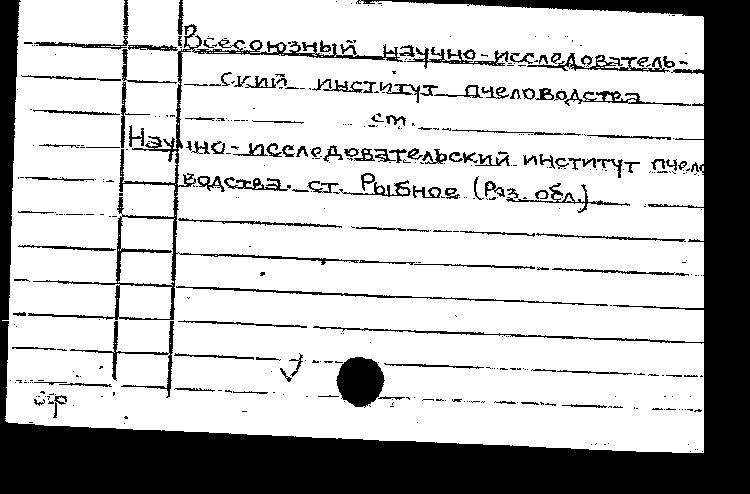 Всесоюзный научно-исследователь-
ский институт пчеловодства
ст.
Научно-исследовательский институт пчело
водства. ст. Рыбное (Ряз. обл.)